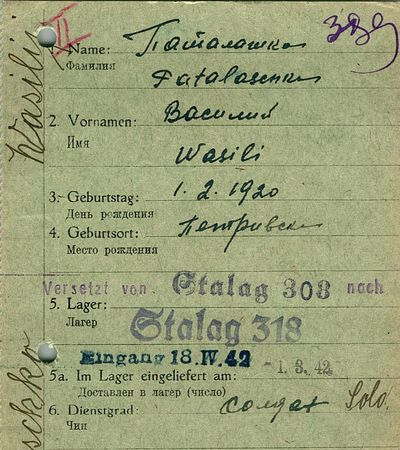 Wasili
VI
1. Name: Паталашка
Фамилия
Patalaschka
2. Vornamen: Василий
Имя
Wasili
3. Geburtstag: 1. 2. 1920
День рождения
4. Geburtsort:
Место рождения
Versetzt von. Stalag 308 nach
5. Lager: Stalag 318
Лагер
Eingang 18. IV. 42
- 1. 3. 42
5a. Im Lager eingeliefert am:
Доставлен в лагер (число)
6. Dienstgrad: солдат Sold.
Чин